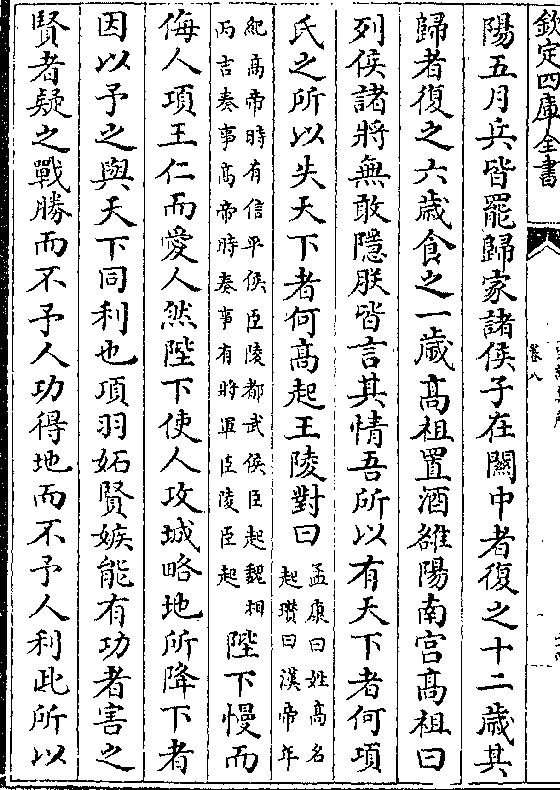 欽定四庫全書
卷八
陽五月兵皆罷歸家諸侯子在關中者復之十二歲其
歸者復之六歲食之一歲高祖置酒雒陽南宮高祖曰
列侯諸將無敢隱朕皆言其情吾所以有天下者何項
氏之所以失天下者何高起王陵對曰孟康曰姓高名
起瓚曰漢帝年
紀高帝時有信平侯臣陵都武侯臣起魏相
丙吉奏事高帝時奏事有將軍臣陵臣起陛下慢而
侮人項王仁而愛人然陛下使人攻城略地所降下者
因以予之與天下同利也項羽妬賢嫉能有功者害之
賢者疑之戰勝而不予人功得地而不予人利此所以